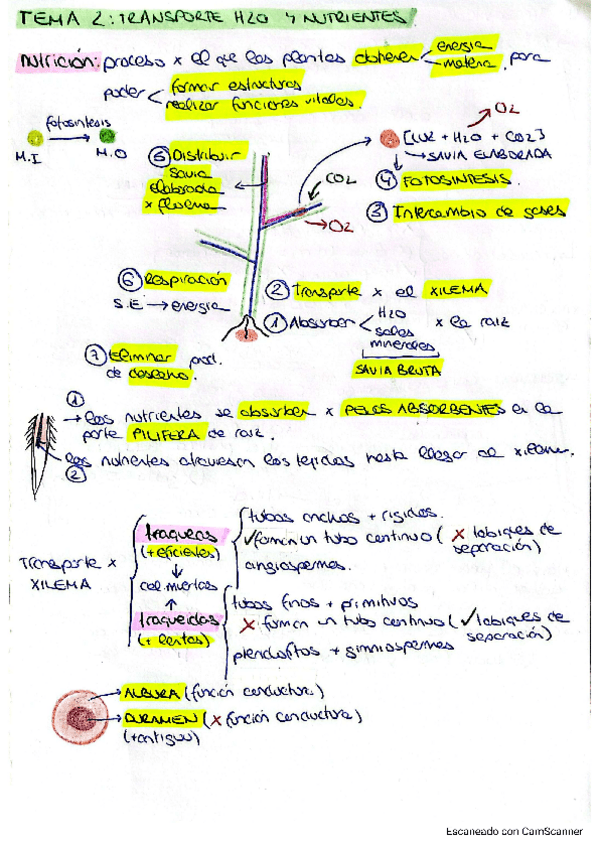 TEMA 2: TRANSPORTE H2O Y NUTRIENTES.
Nutrición: proceso x el que las plantas obtienen energía materia para
poder formar estructuras
realizar funciones vitales.
fotosíntesis
M.I
M.O
O2
[LUZ + H2O + CO2]
SAVIA ELABORADA
④ FOTOSINTESIS.
③ Intercambio de gases
CO2
O2
⑤ Distribuir
savia
elaborada
x floema
⑥ Respiración
S.E → energía
② Transporte x el XILEMA
① Absorber H2O
sales
minerales
x la raiz
SAVIA BRUTA
⑦ Eliminar prod.
de desecho.
①
→ los nutrientes se absorben x PELOS ABSORBENTES en la
parte PILIFERA de raiz.
los nutrientes atraviesan los tejidos hasta llegar al xilema.
②
Transporte x
XILEMA
traqueas
(+ eficientes)
tubos anchos + rigidos.
✓ forman un tubo continuo (X tabiques de
separación)
angiospermas.
cel. muertas
traqueidas
(+ lentas)
tubos finos + primitivos
X forman un tubo continuo (✓ tabiques de
separación)
pteridofitos + gimnospermas
ALBURA (función conductora)
DURAMEN (X función conductora)
(+antiguo)
Escaneado con CamScanner